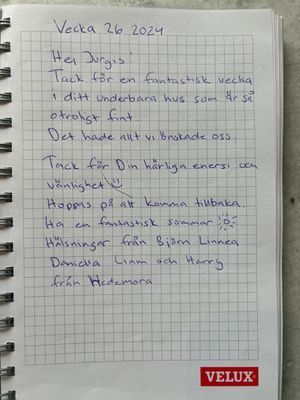 Vecka 26 2024
Hej Jurgis!
Tack för en fantastisk vecka
i ditt underbara hus som är så
otroligt fint.
Det hade allt vi önskade oss.
Tack för Din härliga energi och
vänlighet
Hoppas på att komma tillbaka.
Ha en fantastisk sommar
Hälsningar från Björn Linnea
Daniella Liam och Harry
från Hedemora
VELUX